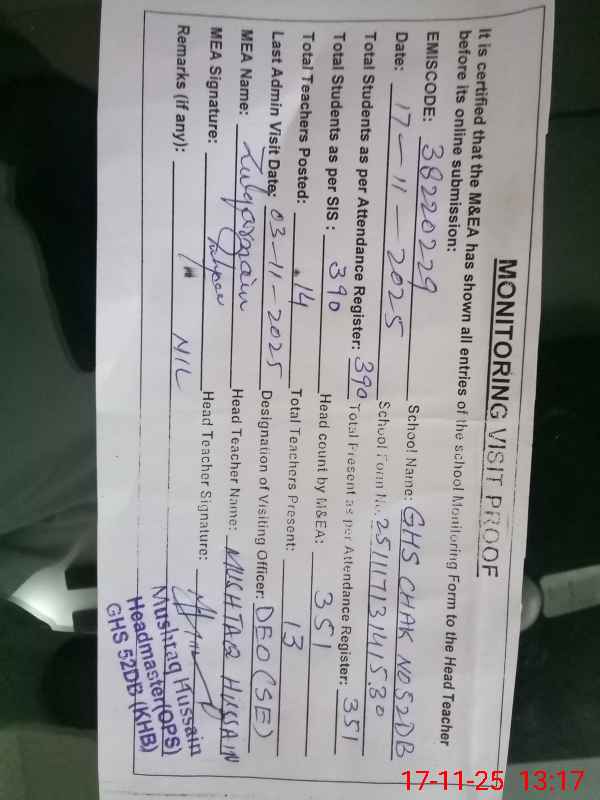 MONITORING VISIT PROOF
It is certified that the M&EA has shown all entries of the school Monitoring Form to the Head Teacher
before its online submission:
EMISCODE: 38220229 School Name: GHS CHAK NO52DB
Date: 17-11-2025 School Form No.
Total Students as per Attendance Register: 390 Total Present as per Attendance Register: 351
Total Students as per SIS: 390 Head count by M&EA: 351
Total Teachers Posted: 14 Total Teachers Present: 13
Last Admin Visit Date: 03-11-2025 Designation of Visiting Officer: DEO(SE)
MEA Name: Head Teacher Name: MUSHTAQ HUSSAIN
MEA Signature: Head Teacher Signature:
Remarks (if any): NIL
Mushtaq Hussain
Headmaster(OPS)
GHS 52DB (KHB)
17-11-25 13:17